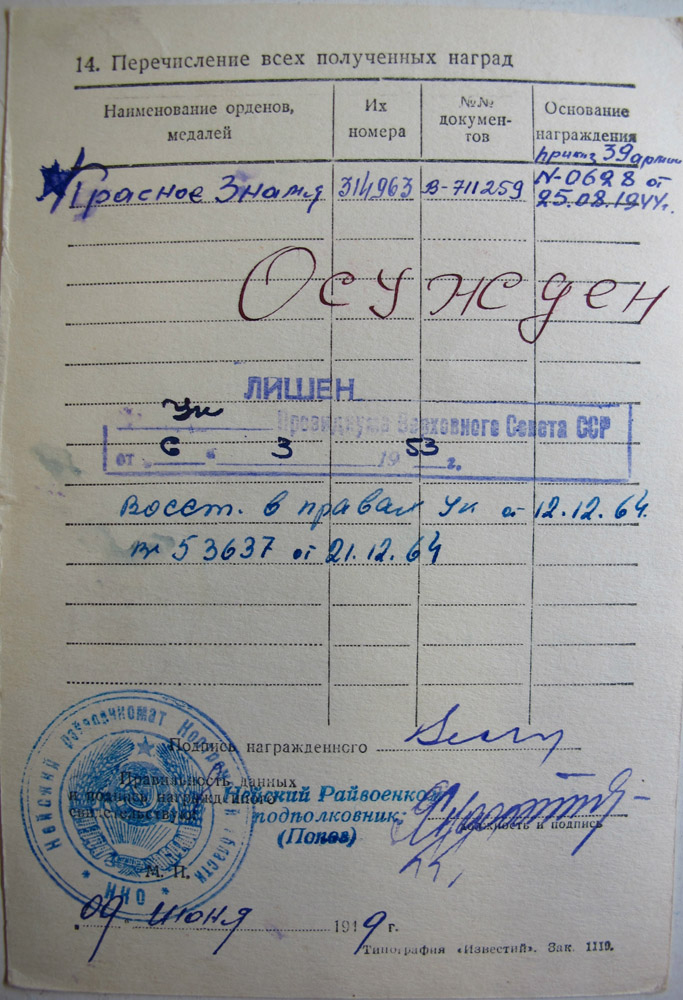 14. Перечисление всех полученных наград
Наименование орденов, медалей
Их номера
№№ докумен-тов
Основание награждения
Красное Знамя 314963 В-711259 приказ 39 армии
N-0628 от
25.08.1944г.
Осужден
ЛИШЕН
Ук Президиума Верховного Совета ССР
от „ 6 “ 3 19 53 г.
Восст. в правах Ук от 12.12.64.
53637 от 21.12.64
Подпись награжденного
Правильность данных
и подписи награжденного
свидетельствую:
Нейский Райвоенком
подполковник
(Попов)
должность и подпись
М. П.
Нейский райвоенкомат Костромской области
НКО
09 июня 1949 г.
Типография «Известий». Зак. 1119.